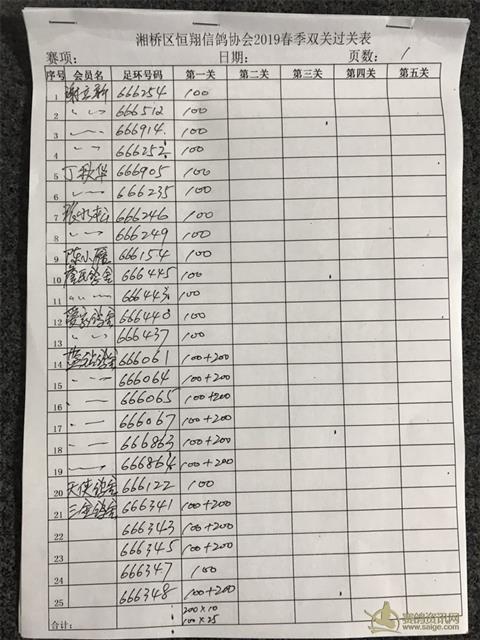 湘桥区恒翔信鸽协会2019春季双关过关表
赛项: 日期: 页数: 1
序号 会员名 足环号码 第一关 第二关 第三关 第四关 第五关
1 谢立新 666254 100
2 〃 〃 666512 100
3 666914 100
4 〃 〃 666252 100
5 丁秋华 666905 100
6 666235 100
7 666246 100
8 〃 〃 666249 100
9 陈小雁 666154 100
10 詹氏鸽舍 666445 100
11 666443 100
12 鸽舍 666440 100
13 〃 〃 666437 100
14 鸽舍 666061 100+200
15 666064 100+200
16 666065 100+200
17 666067 100+200
18 666863 100+200
19 666864 100+200
20 天侠鸽舍 666122 100
21 三金鸽舍 666341 100+200
22 666343 100+200
23 666345 100+200
24 666347 100
25 666348 100+200
合计: 200×10
100×25
赛鸽资讯网
www.saige.com